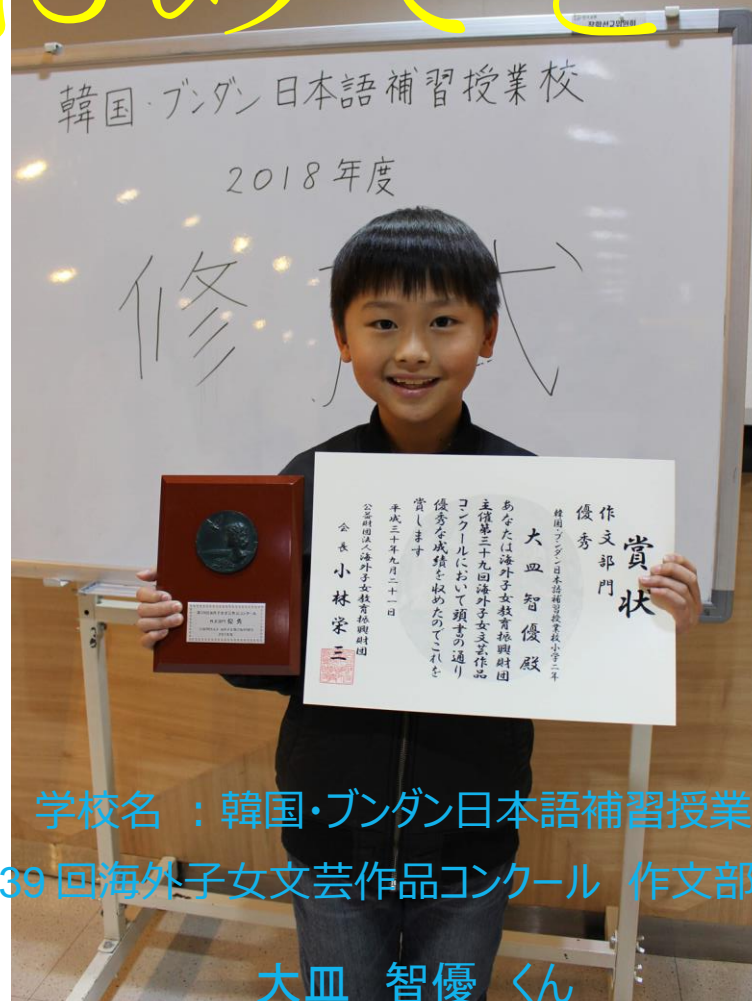 おめでと
韓国・ブンダン日本語補習授業校
2018年度
修 式
賞状
作文部門
優秀
韓国・ブンダン日本語補習授業校小学二年
大皿 智優 殿
あなたは海外子女教育振興財団
主催第三十九回海外子女文芸作品
コンクールにおいて頭書の通り
優秀な成績を収めたのでこれを
賞します
平成三十年九月二十一日
公益財団法人海外子女教育振興財団
会長 小林栄三
優秀
学校名 :韓国・ブンダン日本語補習授業
39回海外子女文芸作品コンクール 作文部
大皿 智優 くん